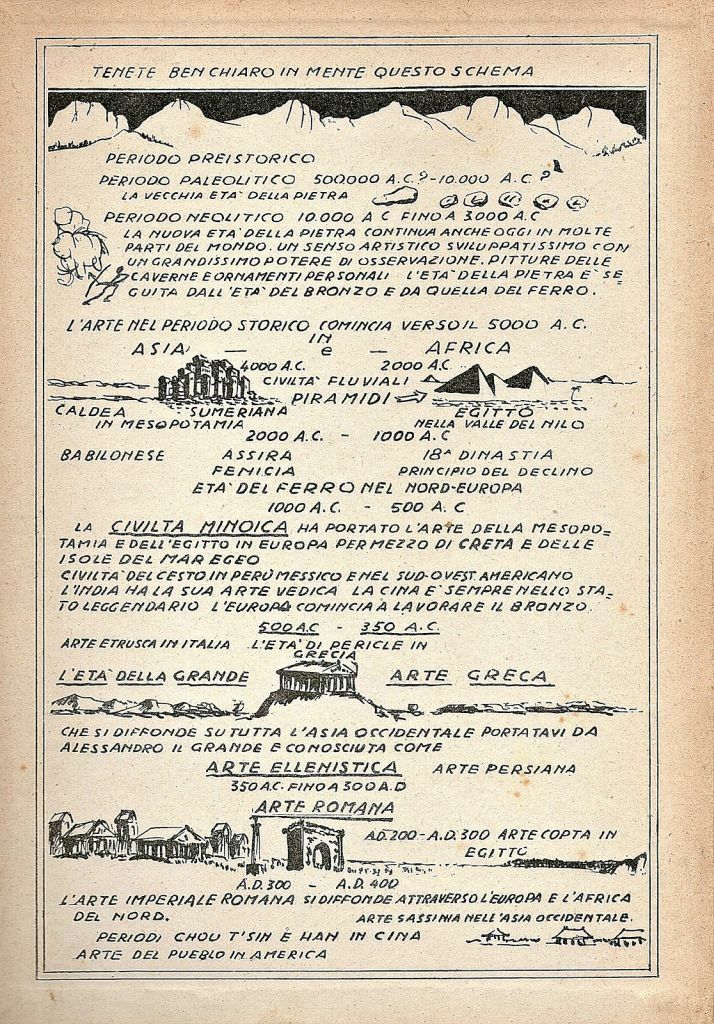 TENETE BEN CHIARO IN MENTE QUESTO SCHEMA
PERIODO PREISTORICO
PERIODO PALEOLITICO 500000 A.C.?-10.000 A.C.?
LA VECCHIA ETA' DELLA PIETRA
PERIODO NEOLITICO 10.000 A C FINO A 3000 A.C
LA NUOVA ETA' DELLA PIETRA CONTINUA ANCHE OGGI IN MOLTE
PARTI DEL MONDO. UN SENSO ARTISTICO SVILUPPATISSIMO CON
UN GRANDISSIMO POTERE DI OSSERVAZIONE. PITTURE DELLE
CAVERNE E ORNAMENTI PERSONALI L'ETA' DELLA PIETRA E' SE-
GUITA DALL'ETA' DEL BRONZO E DA QUELLA DEL FERRO.
L'ARTE NEL PERIODO STORICO COMINCIA VERSO IL 5000 A.C.
IN
ASIA — e — AFRICA
4000 A.C. 2000 A.C.
CIVILTA' FLUVIALI
PIRAMIDI
CALDEA SUMERIANA EGITTO
IN MESOPOTAMIA NELLA VALLE DEL NILO
2000 A.C. - 1000 A.C
BABILONESE ASSIRA 18ª DINASTIA
FENICIA PRINCIPIO DEL DECLINO
ETA' DEL FERRO NEL NORD-EUROPA
1000 A.C. - 500 A.C
LA CIVILTA MINOICA HA PORTATO L'ARTE DELLA MESOPO=
TAMIA E DELL'EGITTO IN EUROPA PER MEZZO DI CRETA E DELLE
ISOLE DEL MAR EGEO
CIVILTA' DEL CESTO IN PERÚ MESSICO E NEL SUD-OVEST AMERICANO
L'INDIA HA LA SUA ARTE VEDICA LA CINA E' SEMPRE NELLO STA-
TO LEGGENDARIO L'EUROPA COMINCIA À LAVORARE IL BRONZO.
500 A.C - 350 A.C.
ARTE ETRUSCA IN ITALIA L'ETA' DI PERICLE IN
GRECIA
L'ETA' DELLA GRANDE ARTE GRECA
CHE SI DIFFONDE SU TUTTA L'ASIA OCCIDENTALE PORTATAVI DA
ALESSANDRO IL GRANDE E CONOSCIUTA COME
ARTE ELLENISTICA ARTE PERSIANA
350 A.C. FINO A 300 A.D
ARTE ROMANA
A.D. 200 - A.D. 300 ARTE COPTA IN
EGITTO
A.D. 300 - A.D. 400
L'ARTE IMPERIALE ROMANA SI DIFFONDE ATTRAVERSO L'EUROPA E L'AFRICA
DEL NORD. ARTE SASSINIA NELL'ASIA OCCIDENTALE.
PERIODI CHOU T'SIN E HAN IN CINA
ARTE DEL PUEBLO IN AMERICA